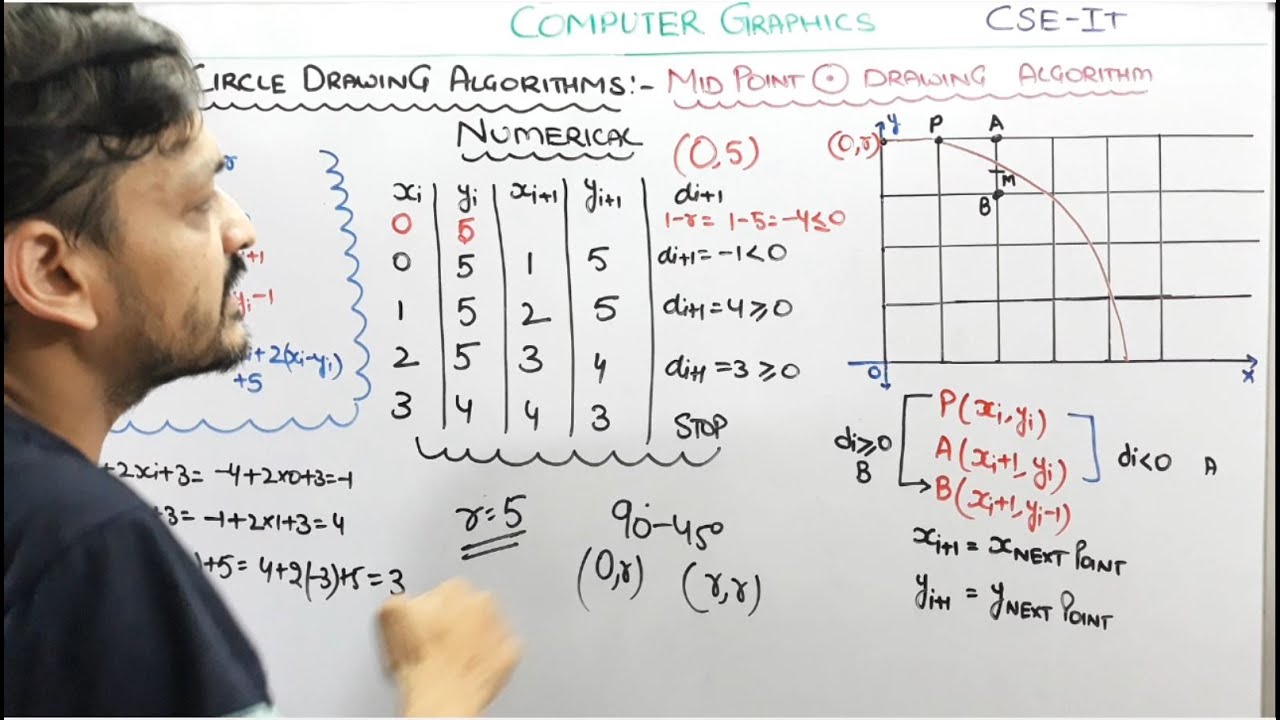 COMPUTER GRAPHICS CSE-IT
CIRCLE DRAWING ALGORITHMS:- MID POINT ⊙ DRAWING ALGORITHM
NUMERICAL (0,5)
xi yi xi+1 yi+1 di+1
0 5 1-r= 1-5=-4≤0
0 5 1 5 di+1=-1<0
1 5 2 5 di+1=4≥0
2 5 3 4 di+1=3≥0
3 4 4 3 STOP
r
i+1
yi-1
xi+2(xi-yi)
+5
+2xi+3= -4+2x0+3=-1
+3= -1+2x1+3=4
)+5= 4+2(-3)+5=3
r=5 90°-45°
(0,r) (r,r)
(0,r) y P A
M
B
0 x
di≥0
B
P(xi,yi)
A(xi+1,yi)
B(xi+1,yi-1)
di<0 A
xi+1 = xNEXT POINT
yi+1 = yNEXT POINT